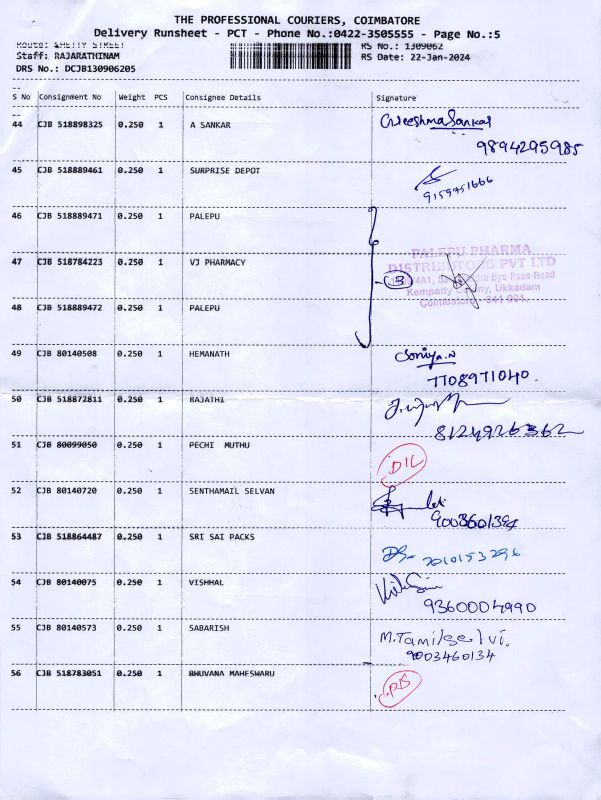 THE PROFESSIONAL COURIERS, COIMBATORE
Delivery Runsheet - PCT - Phone No.:0422-3505555 - Page No.:5
Route: SHETTY STREET
RS No.: 1309062
Staff: RAJARATHINAM
RS Date: 22-Jan-2024
DRS No.: DCJB130906205
S No Consignment No Weight PCS Consignee Details Signature
44 CJB 518898325 0.250 1 A SANKAR Greeshma Sankar
9894295985
45 CJB 518889461 0.250 1 SURPRISE DEPOT
9159751666
46 CJB 518889471 0.250 1 PALEPU
PALEPU PHARMA
47 CJB 518784223 0.250 1 VJ PHARMACY DISTRIBUTORS PVT LTD
3 Bye Pass Road
Ukkadam
48 CJB 518889472 0.250 1 PALEPU Coimbatore - 641 001.
49 CJB 80140508 0.250 1 HEMANATH Soniya.N
7708971040.
50 CJB 518872811 0.250 1 RAJATHI
8124926362
51 CJB 80099050 0.250 1 PECHI MUTHU D/L
52 CJB 80140720 0.250 1 SENTHAMAIL SELVAN
9003601394
53 CJB 518864487 0.250 1 SRI SAI PACKS
54 CJB 80140075 0.250 1 VISHHAL
9360004990
55 CJB 80140573 0.250 1 SABARISH M.Tamilselvi.
9003460134
56 CJB 518783051 0.250 1 BHUVANA MAHESWARU